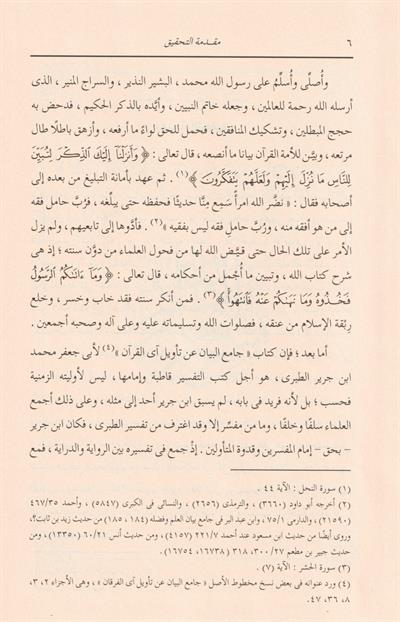 ٦ مقدمة التحقيق
وأُصلِّى وأُسلِّمُ على رسول الله محمد ، البشير النذير ، والسراج المنير ، الذى
أرسله الله رحمة للعالمين ، وجعله خاتم النبيين ، وأيَّده بالذكر الحكيم ، فدحض به
حجج المبطلين ، وتشكيك المنافقين ، فحمل للحق لواءً ما أرفعه ، وأزهق باطلًا طال
مرتعه ، وبيَّن للأمة القرآن بيانا ما أنصعه ، قال تعالى : ﴿ وَأَنزَلْنَا إِلَيْكَ الذِّكْرَ لِتُبَيِّنَ
لِلنَّاسِ مَا نُزِّلَ إِلَيْهِمْ وَلَعَلَّهُمْ يَتَفَكَّرُونَ ﴾(١) . ثم عهد بأمانة التبليغ من بعده إلى
أصحابه فقال : « نضَّر الله امرأً سَمِع مِنَّا حديثًا فحفظه حتى يبلِّغه ، فرُبَّ حامل فقه
إلى من هو أفقه منه ، ورُبَّ حاملِ فقه ليس بفقيه »(٢) . فأدَّوها إلى تابعيهم ، ولم يزل
الأمر على تلك الحال حتى قيَّض الله لها من فحول العلماء من دوَّن سنته ؛ إذ هى
شرح كتاب الله ، وتبيين ما أُجمل من أحكامه ، قال تعالى : ﴿ وَمَا ءَاتَىٰكُمُ الرَّسُولُ
فَخُذُوهُ وَمَا نَهَىٰكُمْ عَنْهُ فَانتَهُوا ﴾(٣) . فمن أنكر سنته فقد خاب وخسر ، وخلع
رِبْقة الإسلام من عنقه ، فصلوات الله وتسليماته عليه وعلى آله وصحبه أجمعين .
أما بعد ؛ فإن كتاب « جامع البيان عن تأويل آى القرآن »(٤) لأبى جعفر محمد
ابن جرير الطبرى ، هو أجل كتب التفسير قاطبة وإمامها ، ليس لأوليته الزمنية
فحسب ؛ بل لأنه فريد فى بابه ، لم يسبق ابن جرير أحد إلى مثله ، وعلى ذلك أجمع
العلماء سلفًا وخلفًا ، وما من مفسِّر إلا وقد اغترف من تفسير الطبرى ، فكان ابن جرير
– بحق – إمام المفسرين وقدوة المتأولين . إذْ جمع فى تفسيره بين الرواية والدراية ، فمع
(١) سورة النحل : الآية ٤٤ .
(٢) أخرجه أبو داود (٣٦٦٠) ، والترمذى (٢٦٥٦) ، والنسائى فى الكبرى (٥٨٤٧) ، وأحمد ٤٦٧/٣٥
(٢١٥٩٠) ، والدارمى ٧٥/١ ، وابن عبد البر فى جامع بيان العلم وفضله (١٨٤ ، ١٨٥) من حديث زيد بن ثابت ،
وروى أيضًا من حديث ابن مسعود عند أحمد ٢٢١/٧ (٤١٥٧) ، ومن حديث أنس ٦٠/٢١ (١٣٣٥٠) ، ومن
حديث جبير بن مطعم ٣٠٠/٢٧ ، ٣١٨ (١٦٧٣٨ ، ١٦٧٥٤) .
(٣) سورة الحشر : الآية (٧) .
(٤) ورد عنوانه فى بعض نسخ مخطوط الأصل « جامع البيان عن تأويل آى الفرقان » ، وهى الأجزاء ٢ ، ٣ ،
٨ ، ٣٦ ، ٤٧ .